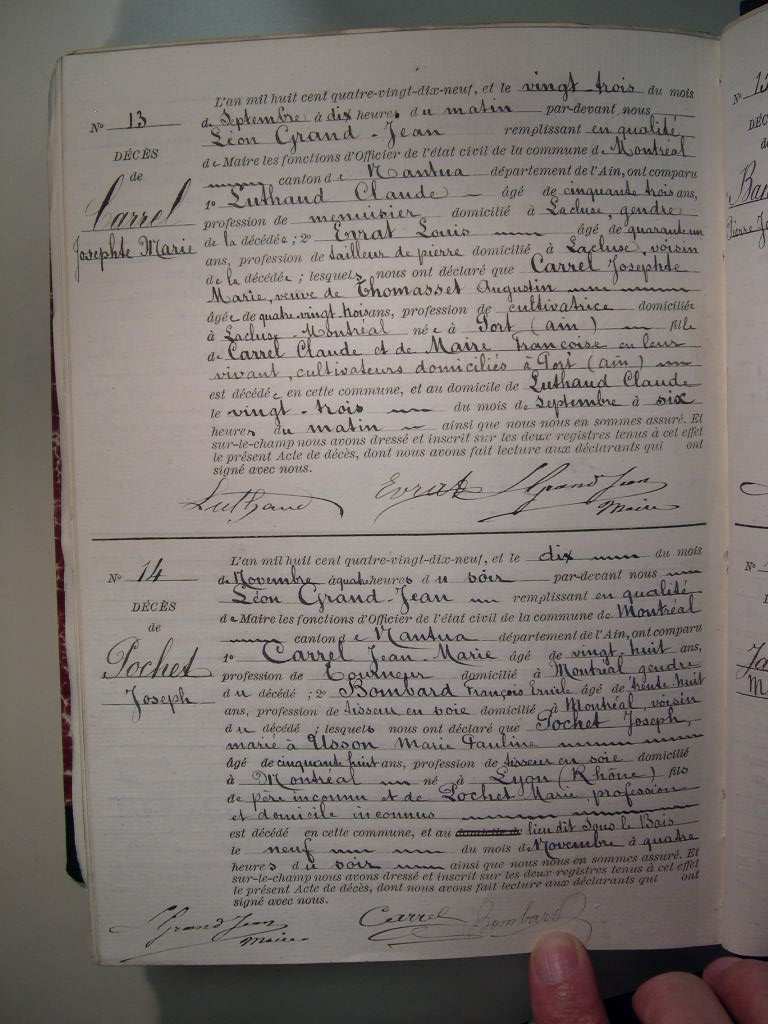 L'an mil huit cent quatre-vingt-dix-neuf, et le vingt-trois du mois
de Septembre à dix heures du matin par-devant nous
Nº 13
Léon Grand-Jean remplissant en qualité
de Maire les fonctions d'Officier de l'état civil de la commune de Montréal
DÉCÈS
canton de Nantua département de l'Ain, ont comparu
de
1º Luthaud Claude âgé de cinquante trois ans,
Carrel
profession de menuisier domicilié à Lacluse, gendre
Josephte Marie
de la décédée ; 2º Evrat Louis âgé de quarante un
ans, profession de tailleur de pierre domicilié à Lacluse, voisin
de la décédée ; lesquels nous ont déclaré que Carrel Josephte
Marie, veuve de Thomasset Augustin
âgée de quatre-vingt trois ans, profession de cultivatrice domiciliée
à Lacluse-Montréal née à Port (ain) fille
de Carrel Claude et de Maire Françoise en leur
vivant, cultivateurs domiciliés à Port (ain)
est décédée en cette commune, et au domicile de Luthaud Claude
le vingt-trois du mois de septembre à six
heures du matin ainsi que nous nous en sommes assuré. Et
sur-le-champ nous avons dressé et inscrit sur les deux registres tenus à cet effet
le présent Acte de décès, dont nous avons fait lecture aux déclarants qui ont
signé avec nous.
Luthaud Evrat LGrand Jean
Maire
L'an mil huit cent quatre-vingt-dix-neuf, et le dix du mois
Nº 14
de Novembre à quatre heures du soir par-devant nous
Léon Grand-Jean remplissant en qualité
DÉCÈS
de Maire les fonctions d'Officier de l'état civil de la commune de Montréal
de
canton de Nantua département de l'Ain, ont comparu
Pochet
1º Carrel Jean-Marie âgé de vingt-huit ans,
profession de Tourneur domicilié à Montréal gendre
Joseph
du décédé ; 2º Bombard François Emile âgé de trente huit
ans, profession de tisseur en soie domicilié à Montréal, voisin
du décédé ; lesquels nous ont déclaré que Pochet Joseph,
marié à Usson Marie Pauline
âgé de cinquante huit ans, profession de tisseur en soie domicilié
à Montréal né à Lyon (Rhône) fils
de père inconnu et de Pochet Marie, profession
et domicile inconnus
est décédé en cette commune, et au domicile de lieu dit Sous le Bois
le neuf du mois de Novembre à quatre
heures du soir ainsi que nous nous en sommes assuré. Et
sur-le-champ nous avons dressé et inscrit sur les deux registres tenus à cet effet
le présent Acte de décès, dont nous avons fait lecture aux déclarants qui ont
signé avec nous.
LGrand Jean Carrel Bombard
Maire